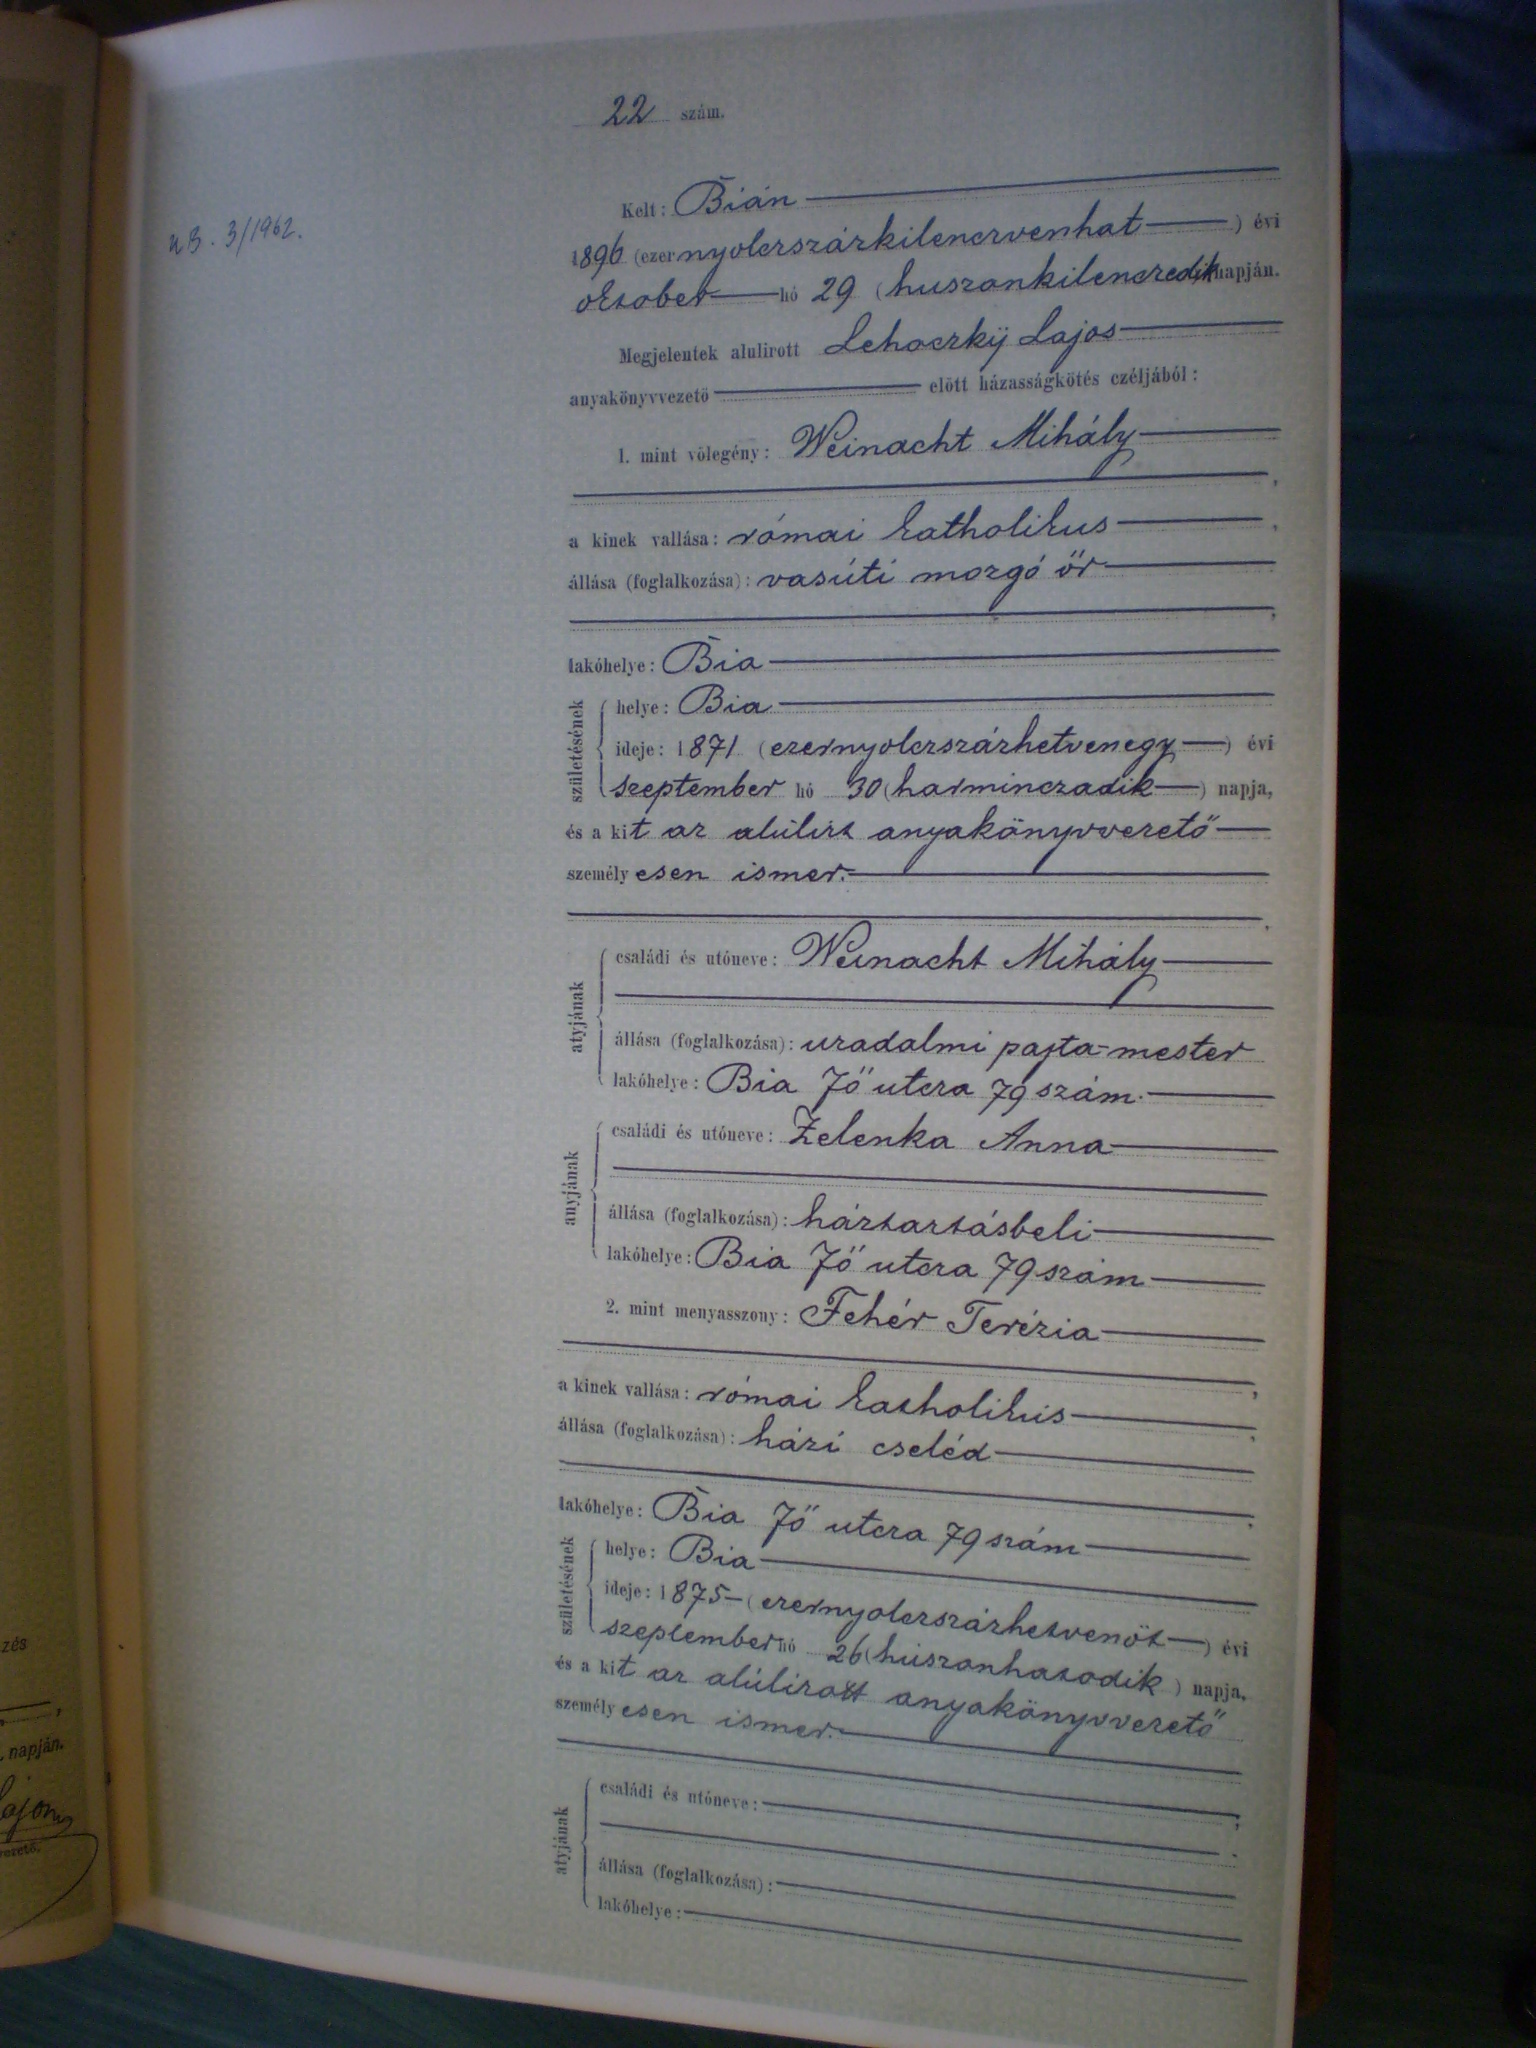 22 szám.
U.B. 3/1962.
Kelt: Bián
1896 (ezernyolczszázkilenczvenhat) évi
október hó 29 (huszonkilenczedik napján.
Megjelentek alulirott Lehoczky Lajos
anyakönyvvezető előtt házasságkötés czéljából:
1. mint vőlegény: Weinacht Mihály
a kinek vallása: római katholikus
állása (foglalkozása): vasúti mozgó őr
lakóhelye: Bia
születésének
helye: Bia
ideje: 1871 (ezernyolczszázhetvenegy) évi
szeptember hó 30 (harminczadik) napja,
és a kit az alúlirt anyakönyvvezető
személyesen ismer.
atyjának
családi és utóneve: Weinacht Mihály
állása (foglalkozása): uradalmi pajta-mester
lakóhelye: Bia Fő utcza 79 szám.
anyjának
családi és utóneve: Zelenka Anna
állása (foglalkozása): háztartásbeli
lakóhelye: Bia Fő utcza 79 szám
2. mint menyasszony: Fehér Terézia
a kinek vallása: római katholikus
állása (foglalkozása): házi cseléd
lakóhelye: Bia Fő utcza 79 szám
születésének
helye: Bia
ideje: 1875 (ezernyolczszázhetvenöt) évi
szeptember hó 26 (húszonhatodik) napja,
és a kit az alúlirott anyakönyvvezető
személyesen ismer.
atyjának
családi és utóneve:
állása (foglalkozása):
lakóhelye:
zés
napján.